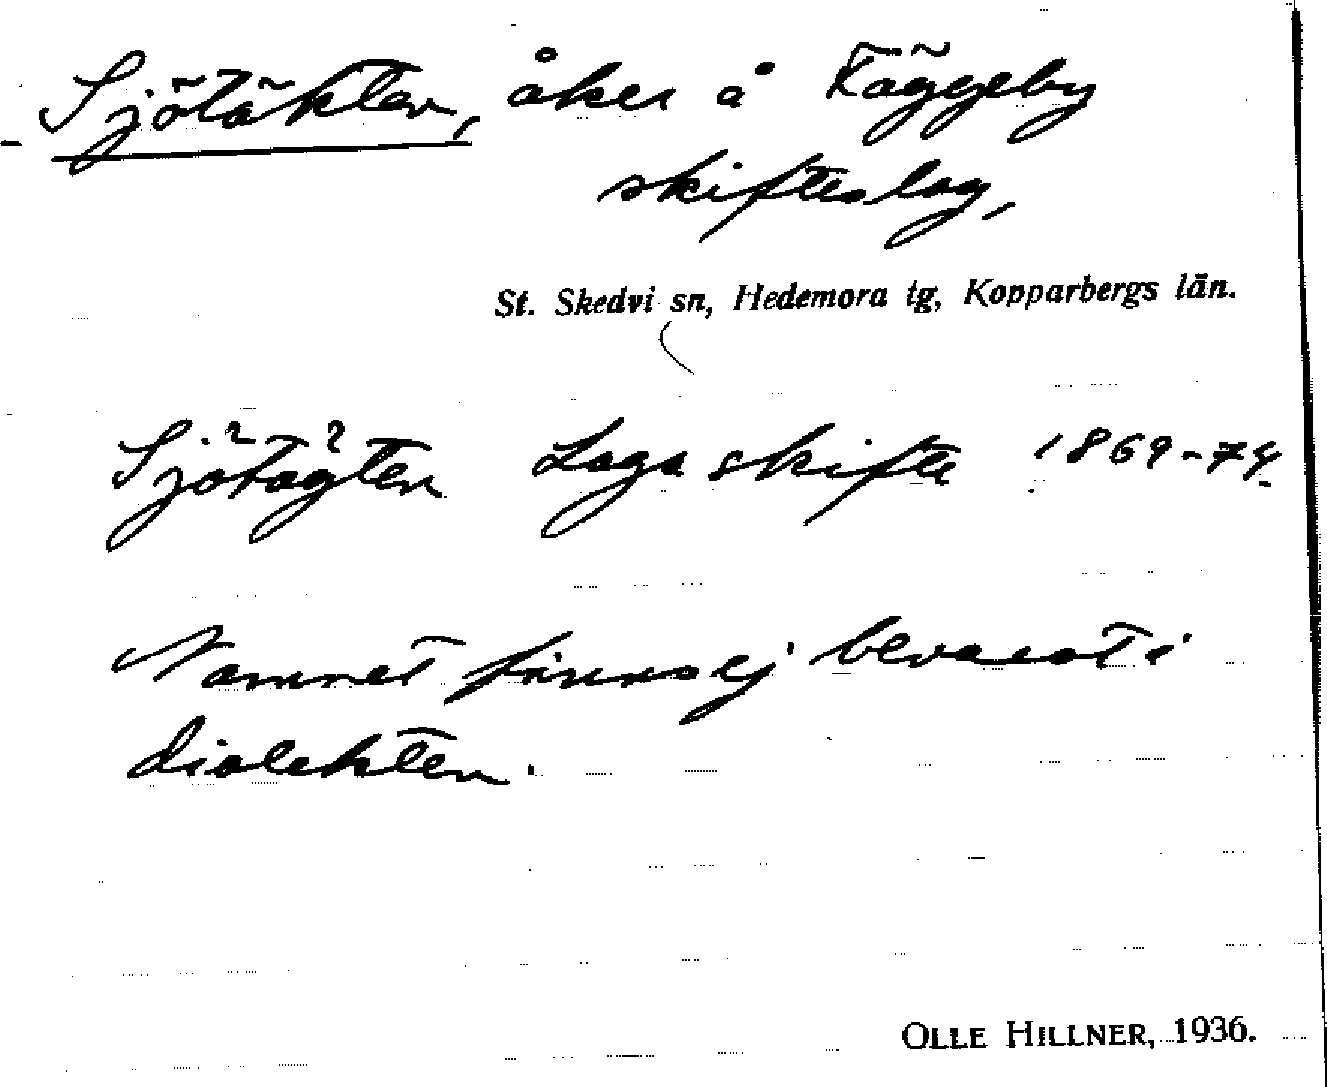 Sjötäkten, åker å Fäggeby
skifteslag,
St. Skedvi sn, Hedemora tg, Kopparbergs län.
Sjötägten Laga skifte 1869-74.
Namnet finns ej bevarat i
dialekten.
OLLE HILLNER, 1936.